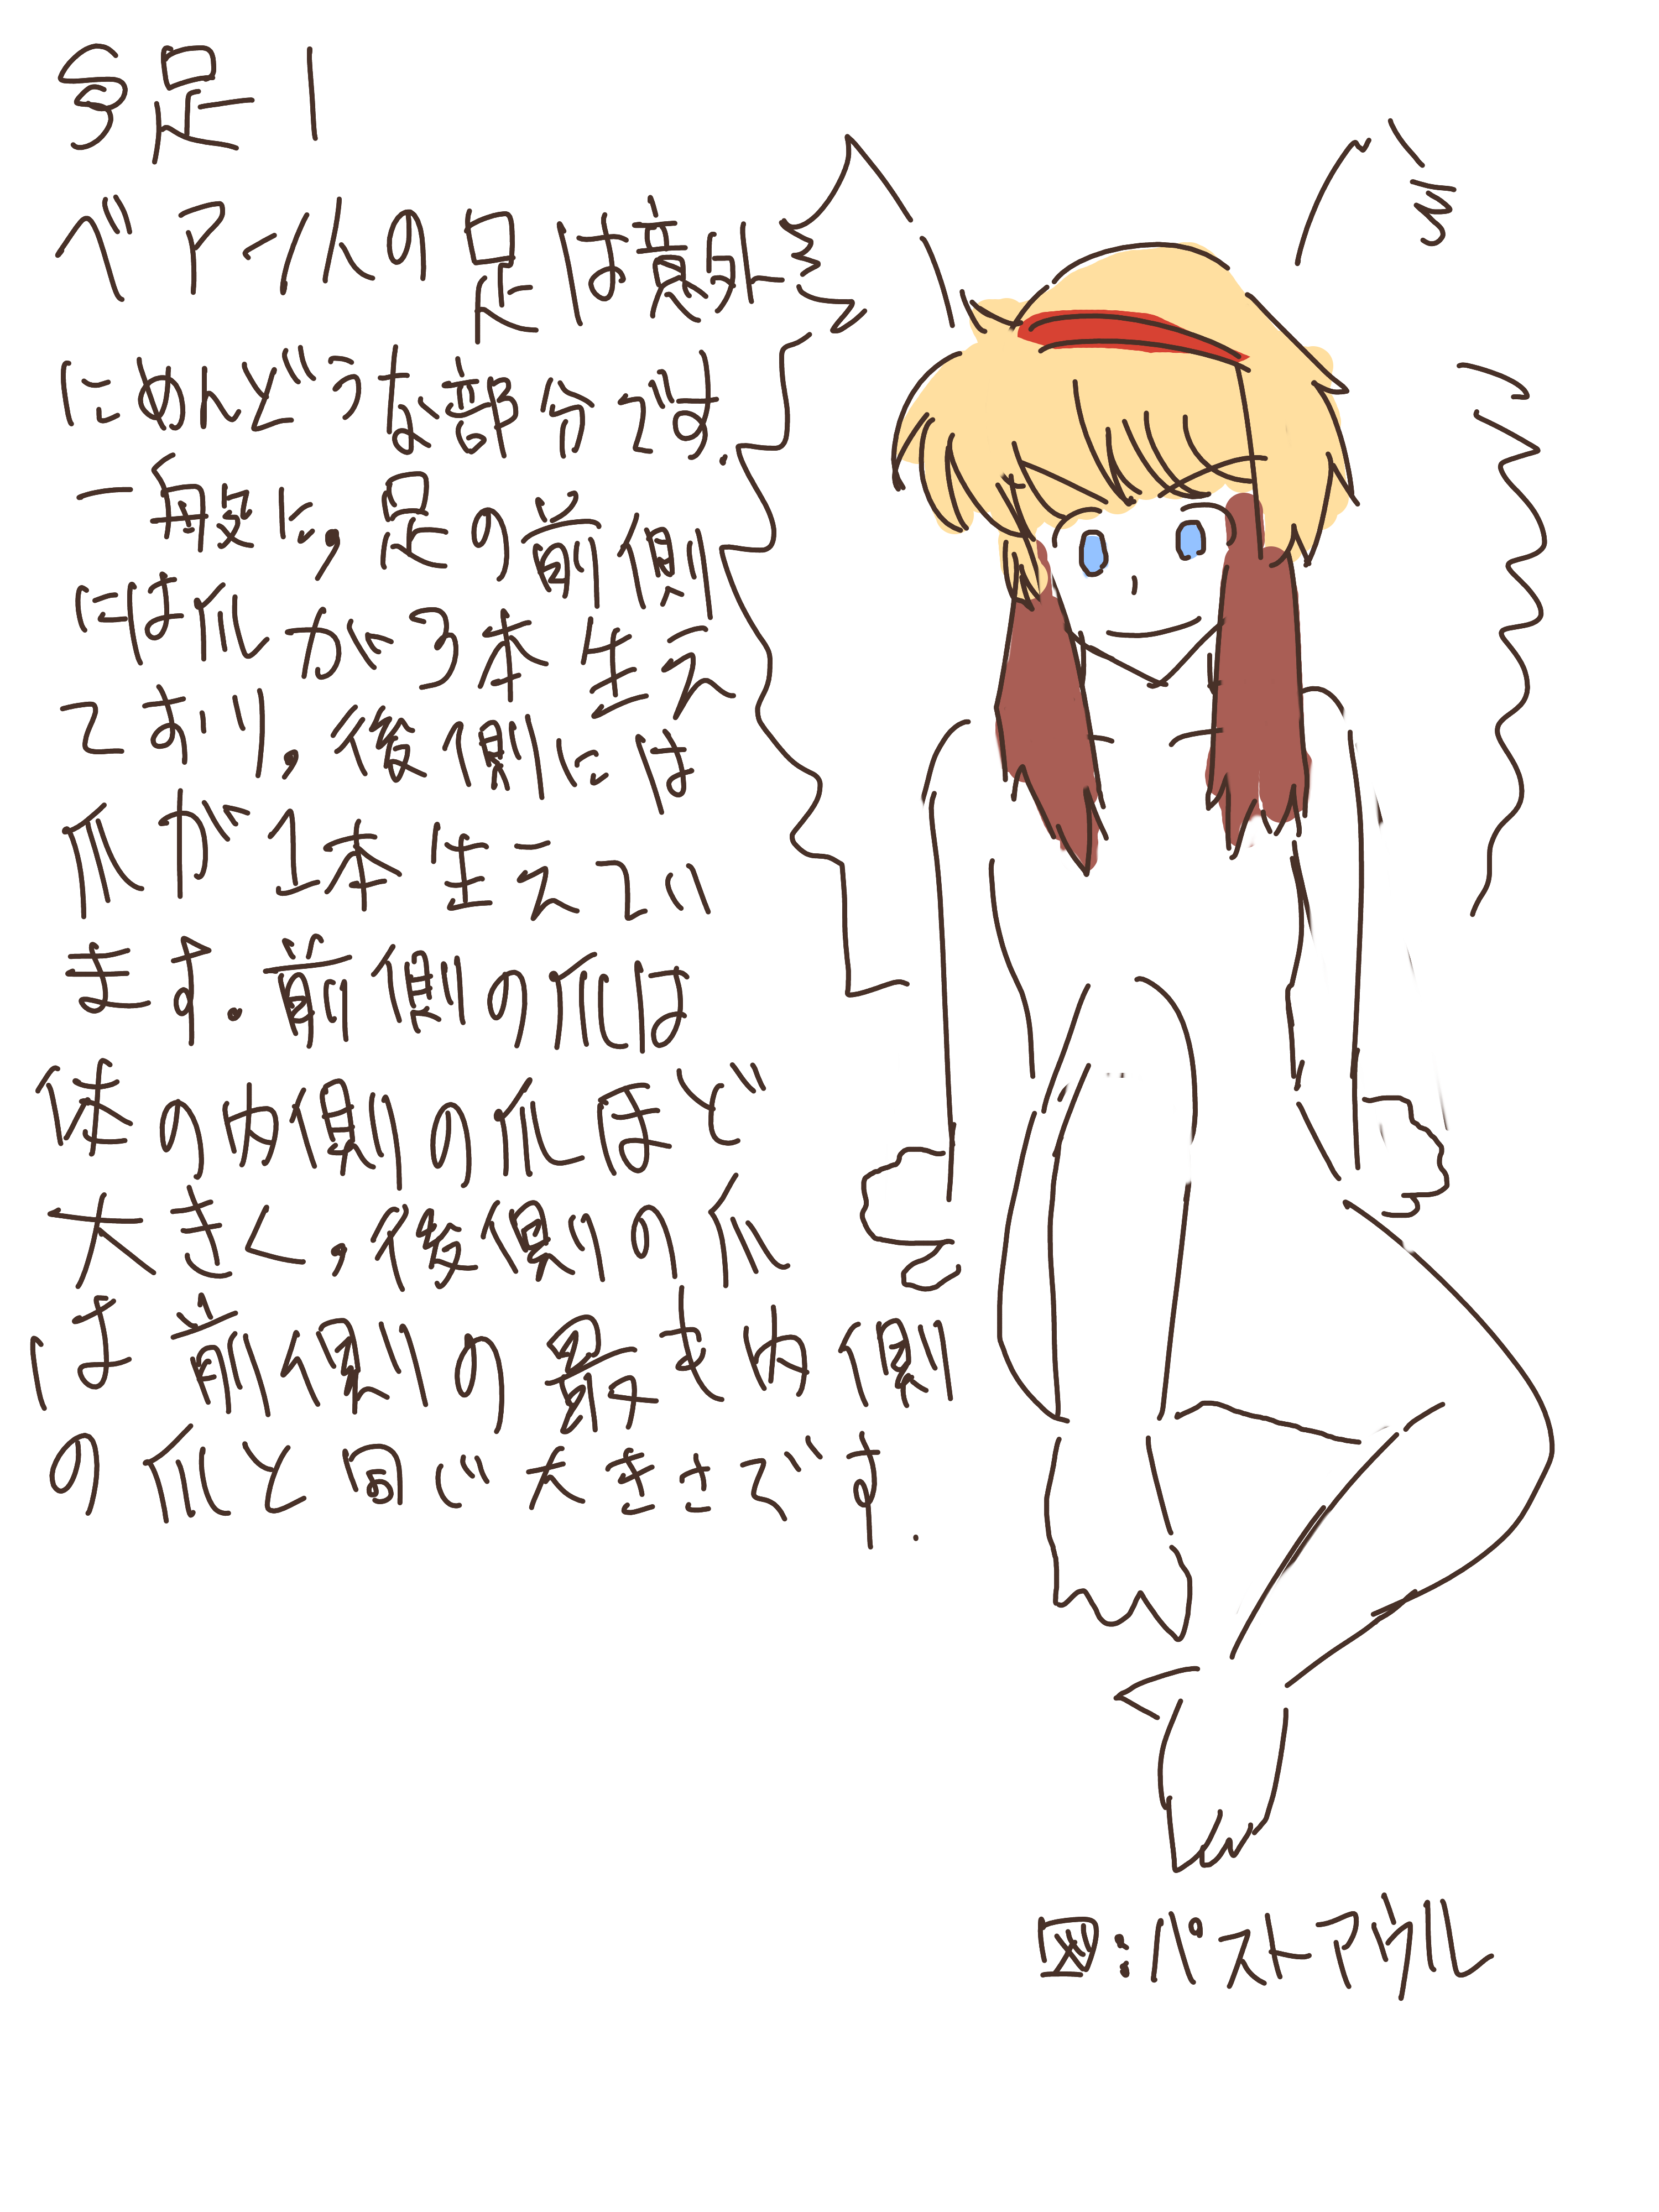 多足1
ベアイルの足は意外
にめんどうな部分です.
一般に,足の前側
には爪が3本生え
ており,後側には
爪が1本生えてい
ます.前側の爪は
体の内側の爪ほど
大きく,後側の爪
は前側の最も内側
の爪と同じ大きさです.
図:パストアウル